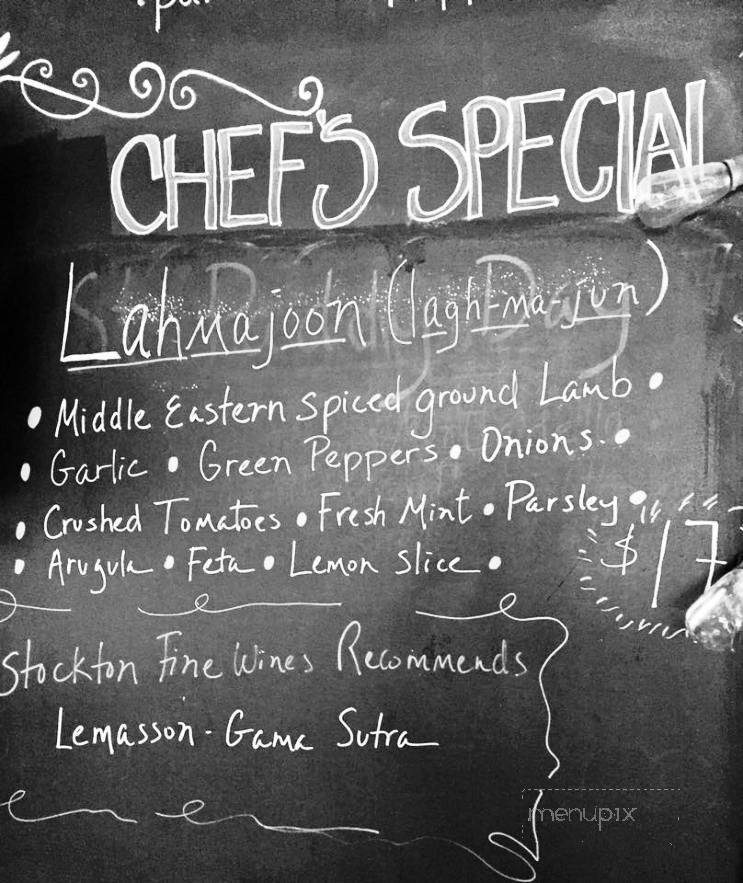 CHEF'S SPECIAL
Lahmajoon (lagh-ma-jun)
• Middle Eastern spiced ground Lamb •
• Garlic • Green Peppers • Onions. •
• Crushed Tomatoes • Fresh Mint • Parsley •
• Arugula • Feta • Lemon slice •
$17
Stockton Fine Wines Recommends
Lemasson - Gama Sutra
menupix